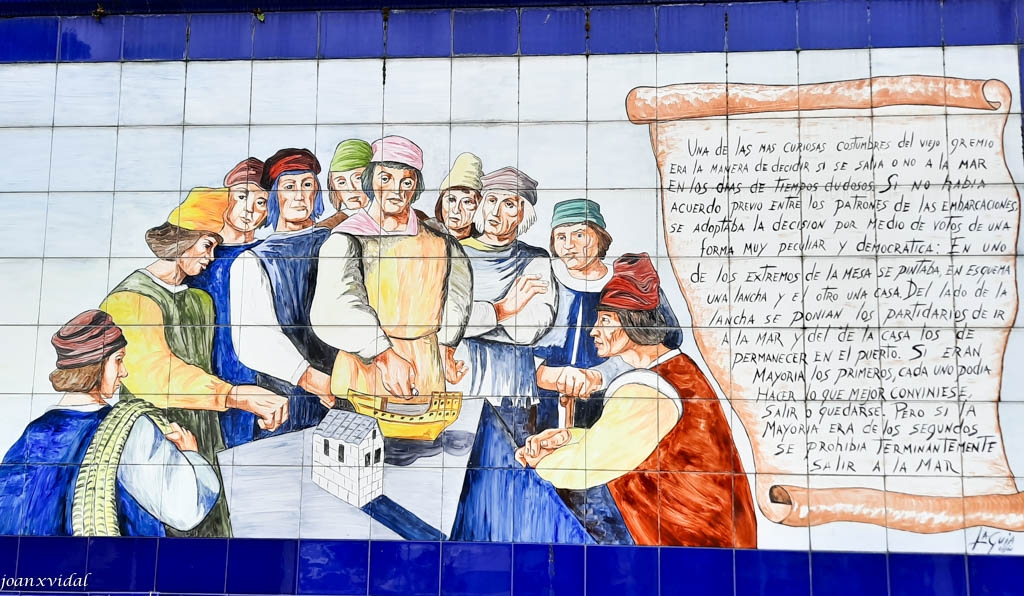 UNA DE LAS MAS CURIOSAS COSTUMBRES DEL VIEJO GREMIO
ERA LA MANERA DE DECIDIR SI SE SALIA O NO A LA MAR
EN LOS DIAS DE TIEMPOS DUDOSOS. SI NO HABIA
ACUERDO PREVIO ENTRE LOS PATRONES DE LAS EMBARCACIONES,
SE ADOPTABA LA DECISION POR MEDIO DE VOTOS DE UNA
FORMA MUY PECULIAR Y DEMOCRATICA: EN UNO
DE LOS EXTREMOS DE LA MESA SE PINTABA, EN ESQUEMA
UNA LANCHA Y EL OTRO UNA CASA. DEL LADO DE LA
LANCHA SE PONIAN LOS PARTIDARIOS DE IR
A LA MAR Y DEL DE LA CASA LOS DE
PERMANECER EN EL PUERTO. SI ERAN
MAYORIA LOS PRIMEROS, CADA UNO PODIA
HACER LO QUE MEJOR CONVINIESE,
SALIR O QUEDARSE. PERO SI LA
MAYORIA ERA DE LOS SEGUNDOS
SE PROHIBIA TERMINANTEMENTE
SALIR A LA MAR
LA GUIA
joanxvidal